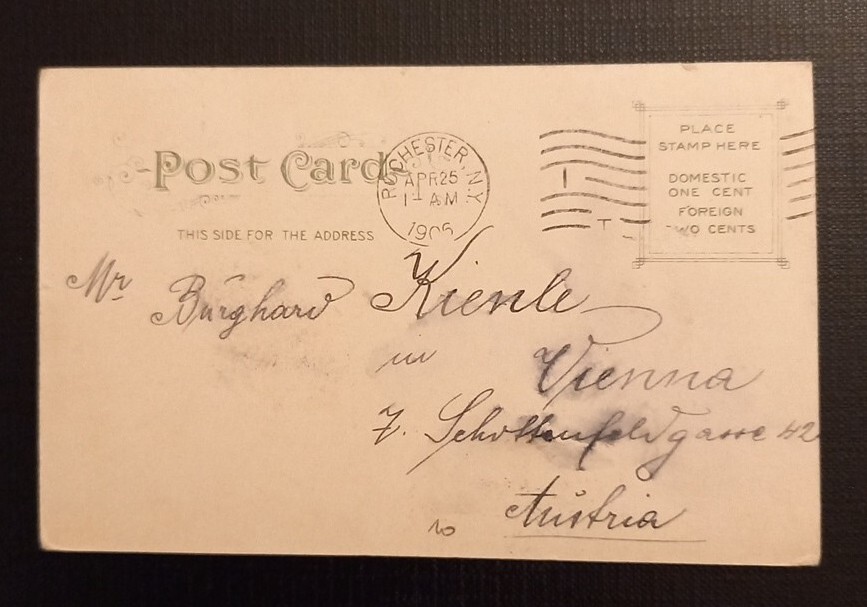 Post Card
THIS SIDE FOR THE ADDRESS
ROCHESTER, N.Y.
APR 25
1 - AM
1906
PLACE
STAMP HERE
DOMESTIC
ONE CENT
FOREIGN
TWO CENTS
Mr Burghard Kienle
in Vienna
7. Schottenfeldgasse 42
Austria